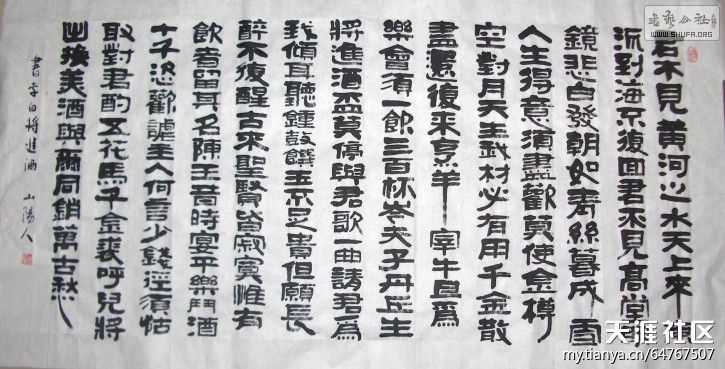 君不見黃河之水天上來
流到海不復回君不見高堂
鏡悲白發朝如青絲暮成雪
人生得意須盡歡莫使金樽
空對月天生我材必有用千金散
盡還復來烹羊宰牛且為
樂會須一飲三百杯岑夫子丹丘生
將進酒杯莫停與君歌一曲請君為
我傾耳聽鐘鼓饌玉不足貴但願長
醉不復醒古來聖賢皆寂寞惟有
飲者留其名陳王昔時宴平樂鬥酒
十千恣歡謔主人何言少錢徑須沽
取對君酌五花馬千金裘呼兒將
出換美酒與爾同銷萬古愁
書李白將進酒 山陽人
WWW.SHUFA.ORG
天涯社区
my.tianya.cn/64767507